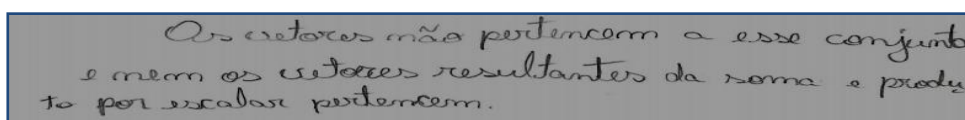 Os vetores não pertencem a esse conjunto
e nem os vetores resultantes da soma e produ
to por escalar pertencem.